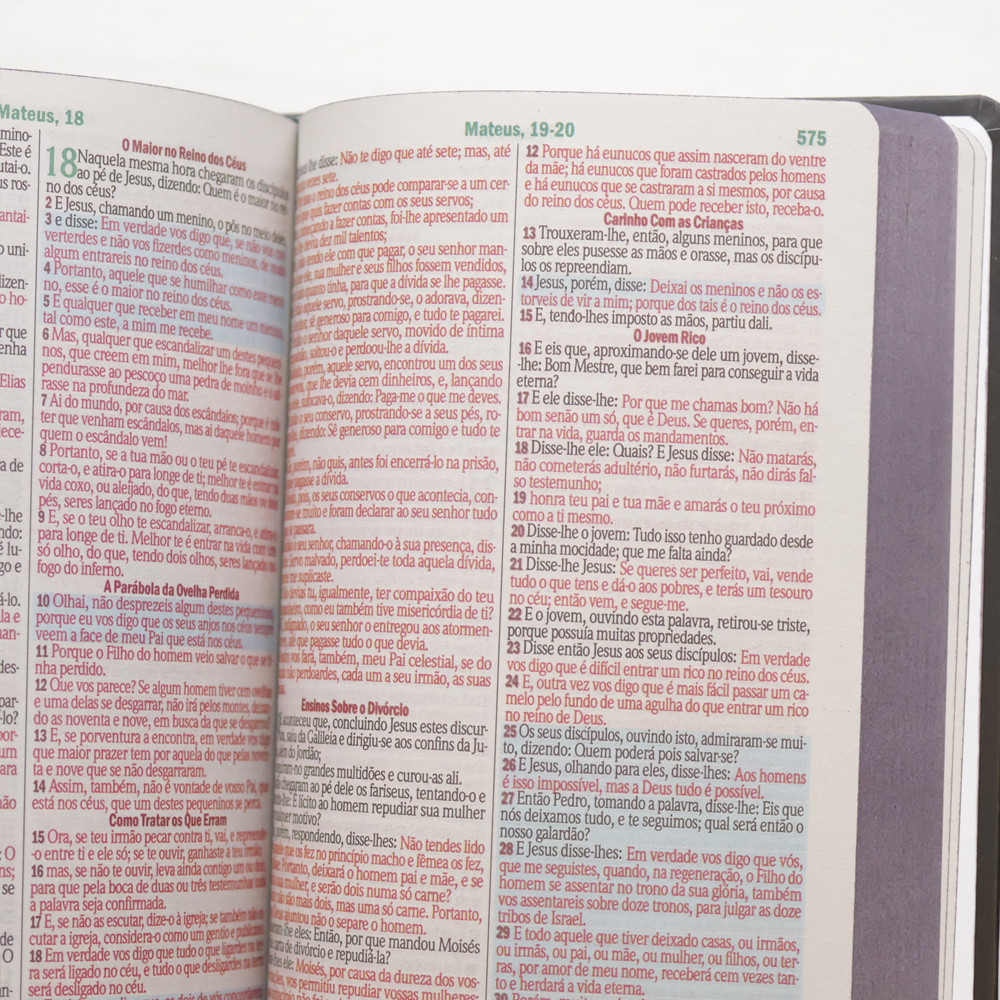 Mateus, 18
mino-
Este é
utai-o.
us ros-
antai-
o uni-
dizen-
o ho-
r que
enha
Elias
ram,
dece-
a de
-lhe
ndo:
é lu-
go e
á-lo.
la e
nan-
des-
par-
-lo?
por-
um
ara
não
: O
ns;
se
de
O
O Maior no Reino dos Céus
18 Naquela mesma hora chegaram os discípulos
ao pé de Jesus, dizendo: Quem é o maior no rei-
no dos céus?
2 E Jesus, chamando um menino, o pôs no meio deles,
3 e disse: Em verdade vos digo que, se não vos con-
verterdes e não vos fizerdes como meninos, de modo
algum entrareis no reino dos céus.
4 Portanto, aquele que se humilhar como este meni-
no, esse é o maior no reino dos céus.
5 E qualquer que receber em meu nome um menino,
tal como este, a mim me recebe.
6 Mas, qualquer que escandalizar um destes pequeni-
nos, que creem em mim, melhor lhe fora que se lhe
pendurasse ao pescoço uma pedra de moinho e
rasse na profundeza do mar.
7 Ai do mundo, por causa dos escândalos; porque é
ter que venham escândalos, mas ai daquele homem por
quem o escândalo vem!
8 Portanto, se a tua mão ou o teu pé te escandalizar,
corta-o, e atira-o para longe de ti; melhor te é entrar na
vida coxo, ou aleijado, do que, tendo duas mãos ou dois
pés, seres lançado no fogo eterno.
9 E, se o teu olho te escandalizar, arranca-o, e atira-o
para longe de ti. Melhor te é entrar na vida com um
só olho, do que, tendo dois olhos, seres lançado no
fogo do inferno.
A Parábola da Ovelha Perdida
10 Olhai, não desprezeis algum destes pequeninos
porque eu vos digo que os seus anjos nos céus sempre
veem a face de meu Pai que está nos céus.
11 Porque o Filho do homem veio salvar o que se ti-
nha perdido.
12 Que vos parece? Se algum homem tiver cem ovelhas
e uma delas se desgarrar, não irá pelos montes, deixan-
do as noventa e nove, em busca da que se desgarrou?
13 E, se porventura a encontra, em verdade vos digo
que maior prazer tem por aquela do que pelas noven-
ta e nove que se não desgarraram.
14 Assim, também, não é vontade de vosso Pai, que
está nos céus, que um destes pequeninos se perca.
Como Tratar os Que Erram
15 Ora, se teu irmão pecar contra ti, vai, e repreende-
-o entre ti e ele só; se te ouvir, ganhaste a teu irmão;
16 mas, se não te ouvir, leva ainda contigo um ou dois,
para que pela boca de duas ou três testemunhas toda
a palavra seja confirmada.
17 E, se não as escutar, dize-o à igreja; se também não es-
cutar a igreja, considera-o como um gentio e publicano.
18 Em verdade vos digo que tudo o que ligardes na ter-
ra será ligado no céu, e tudo o que desligardes na terra
será desligado no céu.
Mateus, 19-20
575
lhe disse: Não te digo que até sete; mas, até
vezes sete.
o reino dos céus pode comparar-se a um cer-
quis fazer contas com os seus servos;
começando a fazer contas, foi-lhe apresentado um
devia dez mil talentos;
tendo ele com que pagar, o seu senhor man-
ele, sua mulher e seus filhos fossem vendidos,
quanto tinha, para que a dívida se lhe pagasse.
aquele servo, prostrando-se, o adorava, dizen-
sê generoso para comigo, e tudo te pagarei.
o senhor daquele servo, movido de íntima
soltou-o e perdoou-lhe a dívida.
porém, aquele servo, encontrou um dos seus
que lhe devia cem dinheiros, e, lançando
sufocava-o, dizendo: Paga-me o que me deves.
o seu conservo, prostrando-se a seus pés, ro-
dizendo: Sê generoso para comigo e tudo te
porém, não quis, antes foi encerrá-lo na prisão,
pagasse a dívida.
pois, os seus conservos o que acontecia, con-
se muito e foram declarar ao seu senhor tudo
passara.
o seu senhor, chamando-o à sua presença, dis-
servo malvado, perdoei-te toda aquela dívida,
suplicaste.
devias tu, igualmente, ter compaixão do teu
como eu também tive misericórdia de ti?
indignado, o seu senhor o entregou aos atormen-
até que pagasse tudo o que devia.
vos fará, também, meu Pai celestial, se do
não perdoardes, cada um a seu irmão, as suas
Ensinos Sobre o Divórcio
aconteceu que, concluindo Jesus estes discur-
saiu da Galileia e dirigiu-se aos confins da Ju-
do Jordão;
grandes multidões e curou-as ali.
chegaram ao pé dele os fariseus, tentando-o e
É lícito ao homem repudiar sua mulher
motivo?
porém, respondendo, disse-lhes: Não tendes lido
que os fez no princípio macho e fêmea os fez,
Portanto, deixará o homem pai e mãe, e se
mulher, e serão dois numa só carne?
são mais dois, mas uma só carne. Portanto,
ajuntou não o separe o homem.
eles: Então, por que mandou Moisés
carta de divórcio e repudiá-la?
eles: Moisés, por causa da dureza dos vos-
vos permitiu repudiar vossas mulheres;
12 Porque há eunucos que assim nasceram do ventre
da mãe; há eunucos que foram castrados pelos homens
e há eunucos que se castraram a si mesmos, por causa
do reino dos céus. Quem pode receber isto, receba-o.
Carinho Com as Crianças
13 Trouxeram-lhe, então, alguns meninos, para que
sobre eles pusesse as mãos e orasse, mas os discípu-
los os repreendiam.
14 Jesus, porém, disse: Deixai os meninos e não os es-
torveis de vir a mim; porque dos tais é o reino dos céus.
15 E, tendo-lhes imposto as mãos, partiu dali.
O Jovem Rico
16 E eis que, aproximando-se dele um jovem, disse-
-lhe: Bom Mestre, que bem farei para conseguir a vida
eterna?
17 E ele disse-lhe: Por que me chamas bom? Não há
bom senão um só, que é Deus. Se queres, porém, en-
trar na vida, guarda os mandamentos.
18 Disse-lhe ele: Quais? E Jesus disse: Não matarás,
não cometerás adultério, não furtarás, não dirás fal-
so testemunho;
19 honra teu pai e tua mãe e amarás o teu próximo
como a ti mesmo.
20 Disse-lhe o jovem: Tudo isso tenho guardado desde
a minha mocidade; que me falta ainda?
21 Disse-lhe Jesus: Se queres ser perfeito, vai, vende
tudo o que tens e dá-o aos pobres, e terás um tesouro
no céu; então vem, e segue-me.
22 E o jovem, ouvindo esta palavra, retirou-se triste,
porque possuía muitas propriedades.
23 Disse então Jesus aos seus discípulos: Em verdade
vos digo que é difícil entrar um rico no reino dos céus.
24 E, outra vez vos digo que é mais fácil passar um ca-
melo pelo fundo de uma agulha do que entrar um rico
no reino de Deus.
25 Os seus discípulos, ouvindo isto, admiraram-se mui-
to, dizendo: Quem poderá pois salvar-se?
26 E Jesus, olhando para eles, disse-lhes: Aos homens
é isso impossível, mas a Deus tudo é possível.
27 Então Pedro, tomando a palavra, disse-lhe: Eis que
nós deixamos tudo, e te seguimos; qual será então o
nosso galardão?
28 E Jesus disse-lhes: Em verdade vos digo que vós,
que me seguistes, quando, na regeneração, o Filho do
homem se assentar no trono da sua glória, também
vos assentareis sobre doze tronos, para julgar as doze
tribos de Israel.
29 E todo aquele que tiver deixado casas, ou irmãos,
ou irmãs, ou pai, ou mãe, ou mulher, ou filhos, ou ter-
ras, por amor de meu nome, receberá cem vezes tan-
to e herdará a vida eterna.